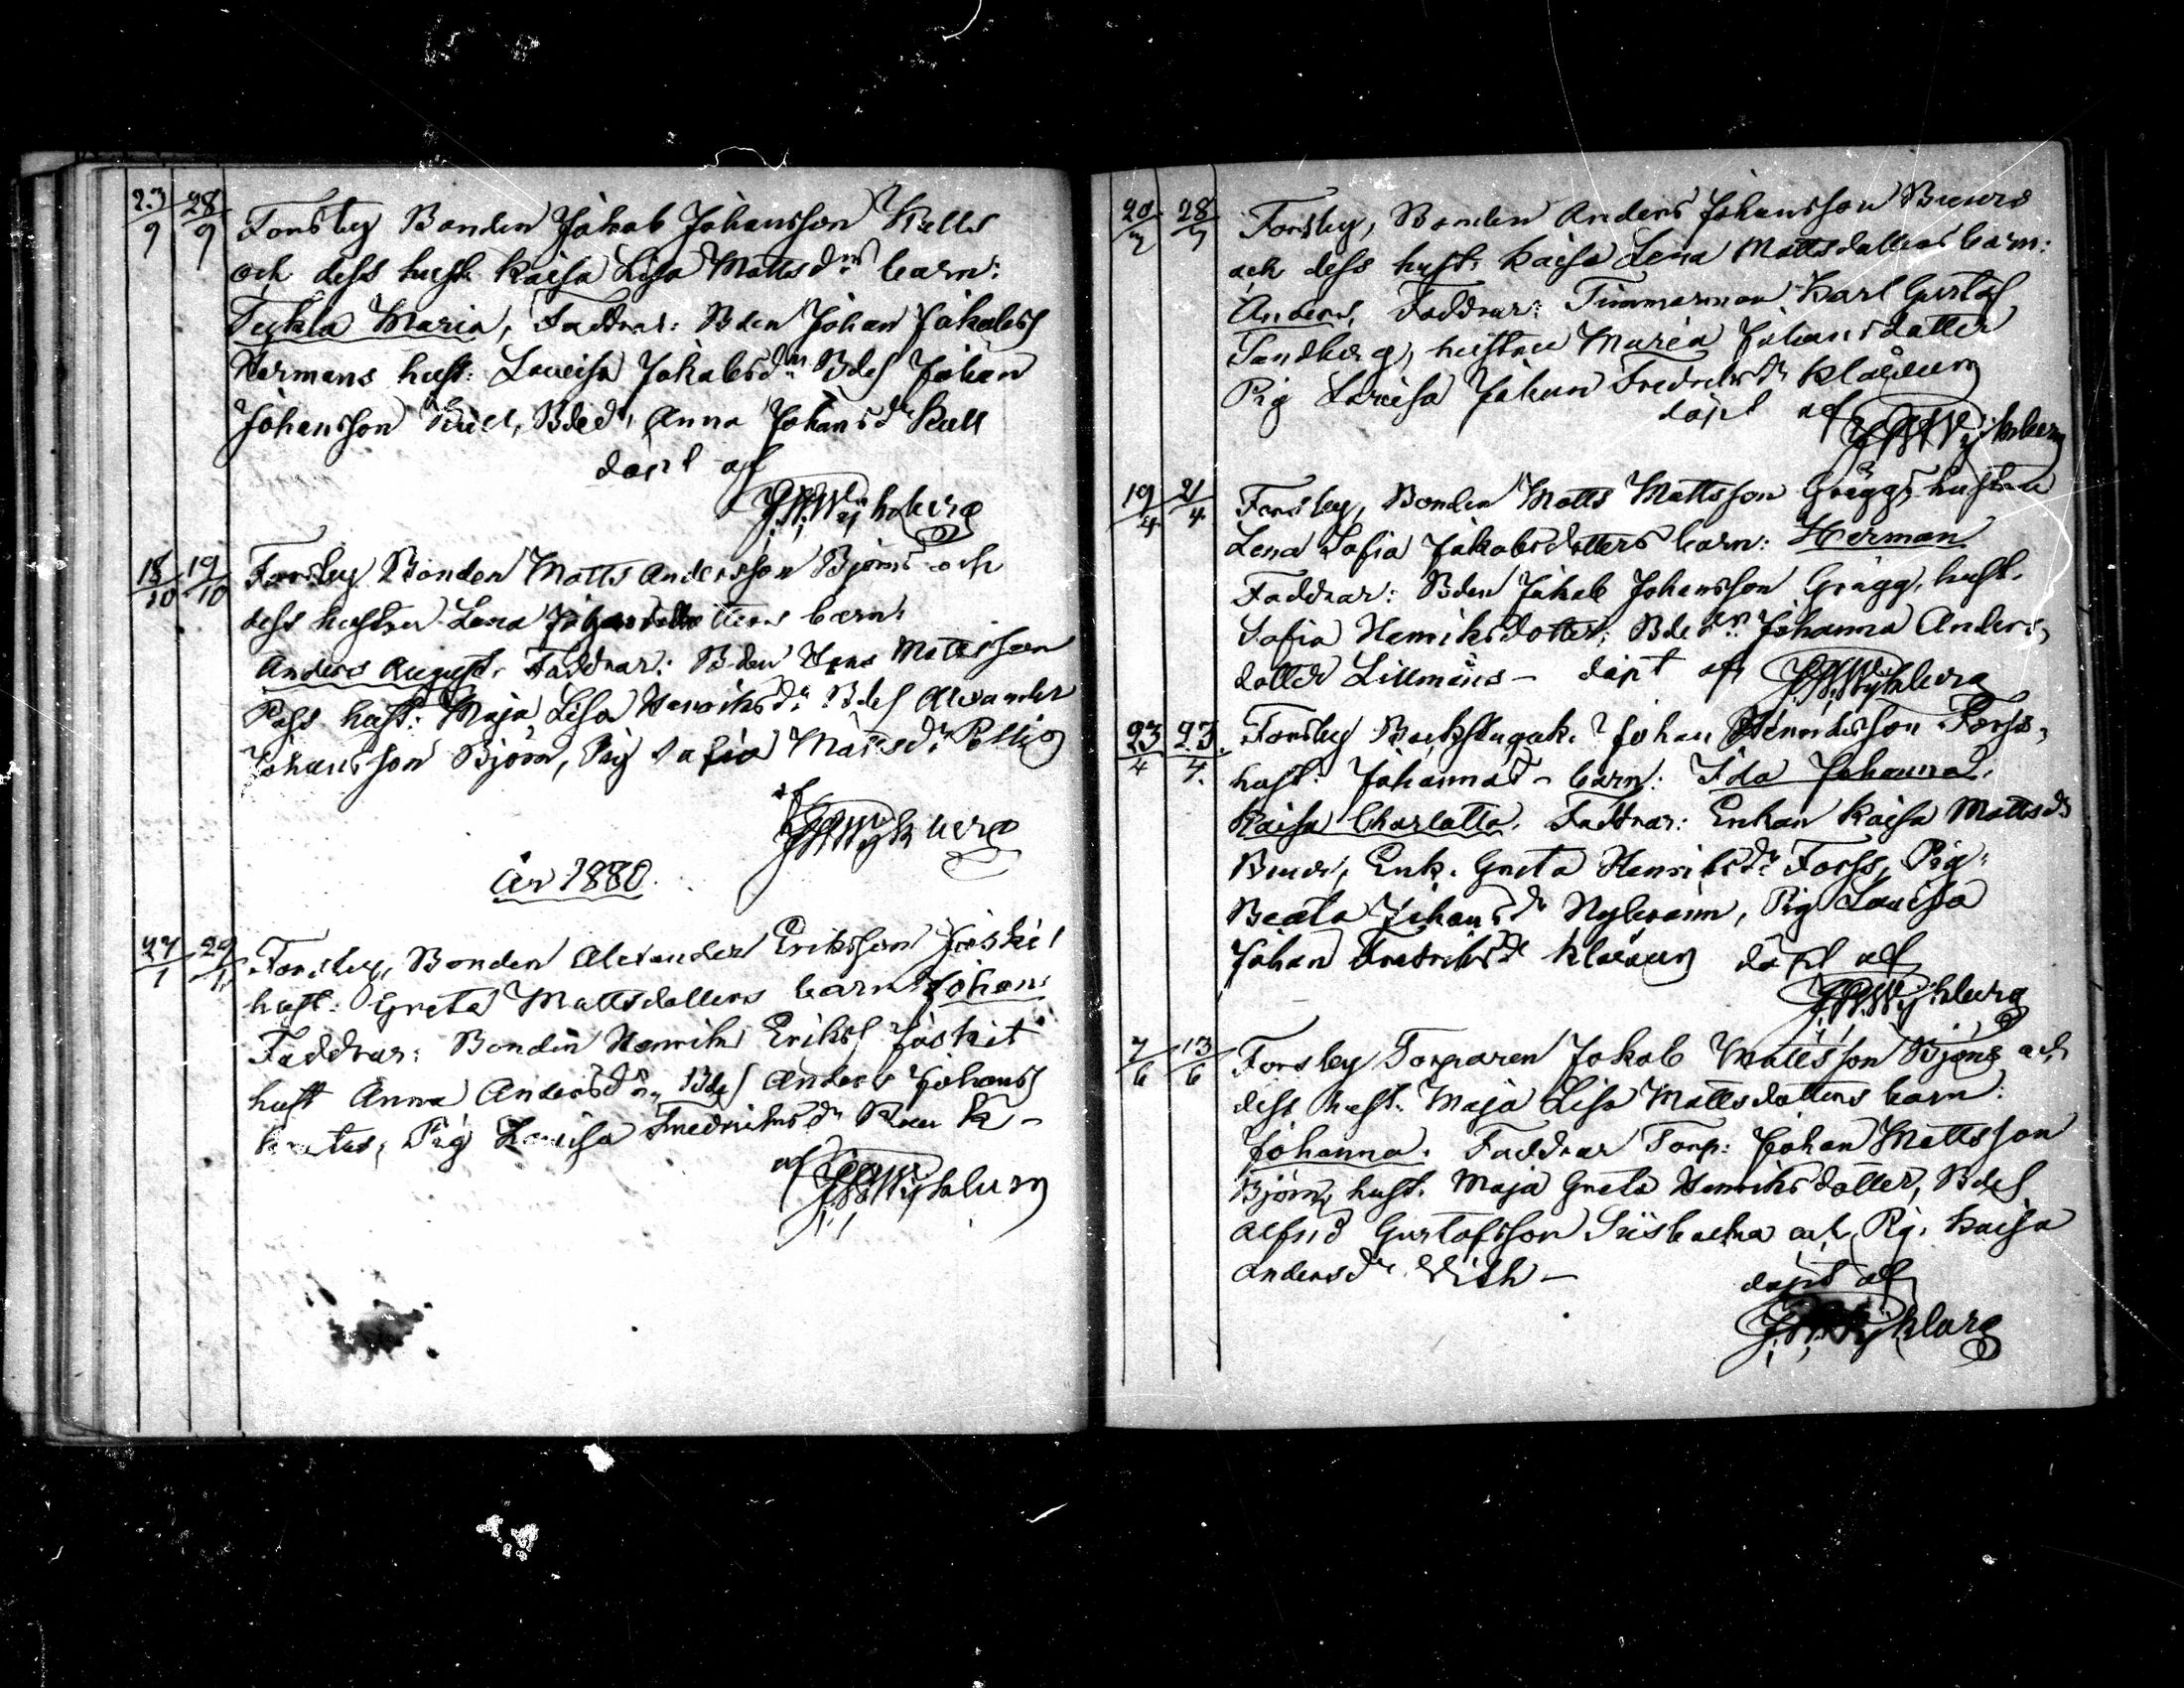 23/9 28/9 Forsby Bonden Jakob Johansson Kulls
och dess hust. Kaisa Lisa Mattsdrs barn:
Teykla Maria, Faddrar: Bden Johan Jakobss
Hermans hust: Lovisa Jakobsdr Bdes Johan
Johansson Kull, Bded. Anna Johansdr Kull
döpt af
18/10 19/10 Forsby Bonden Matts Andersson Björns och
dess hustru Lena barn:
Anders August. Faddrar: Bden Mattsson
Pass hust: Maja Lisa Henriksdr Bdes Alexander
Johansson Björn, Pig Sofia Mattsdr
af
år 1880.
27/1 29/1 Forsby, Bonden Alexander Eriksson
hust: Greta Mattsdotters barn Johan
Faddrar: Bonden Henrik Erikss
hust Anna Andersdr, Bdes Anders Johanss
Pig Lovisa Fredriksdr
af
28/ Forsby, Bonden Anders Johansson
och dess hust. Kaisa Lena Mattsdotters barn:
Anders, Faddrar: Timmerman Karl Gustaf
Sandberg, hustru Maria Johansdotter
Pig Lovisa Johan Fredriksdr
döpt af
19/4 21/4 Forsby, Bonden Matts Mattsson Gräggs hustru
Lena Sofia Jakobsdotters barn: Herman
Faddrar: Bden Jakob Johansson Grägg, hust.
Sofia Henriksdotter, Johanna Anders,
dotter Lillmåns – döpt af
23/4 23/4. Forsby Backstugak. Johan Henriksson Forss,
hust: Johannas – barn: Ida Johanna,
Kaisa Charlotta. Faddrar: Enkan Kaisa Mattsdr
Enk. Greta Henriksdr Forss, Pig:
Beata Johansdr Pig Lovisa
Johan Fredriksdr döpt af
7/6 13/6 Forsby Torparen Jakob Mattsson Björns och
dess hust. Maja Lisa Mattsdotters barn:
Johanna. Faddrar Torp: Johan Mattsson
Björn, hust. Maja Greta Henriksdotter, Bdes
Alfred Gustafsson och Pig. Kaisa
Andersdr –
döpt af